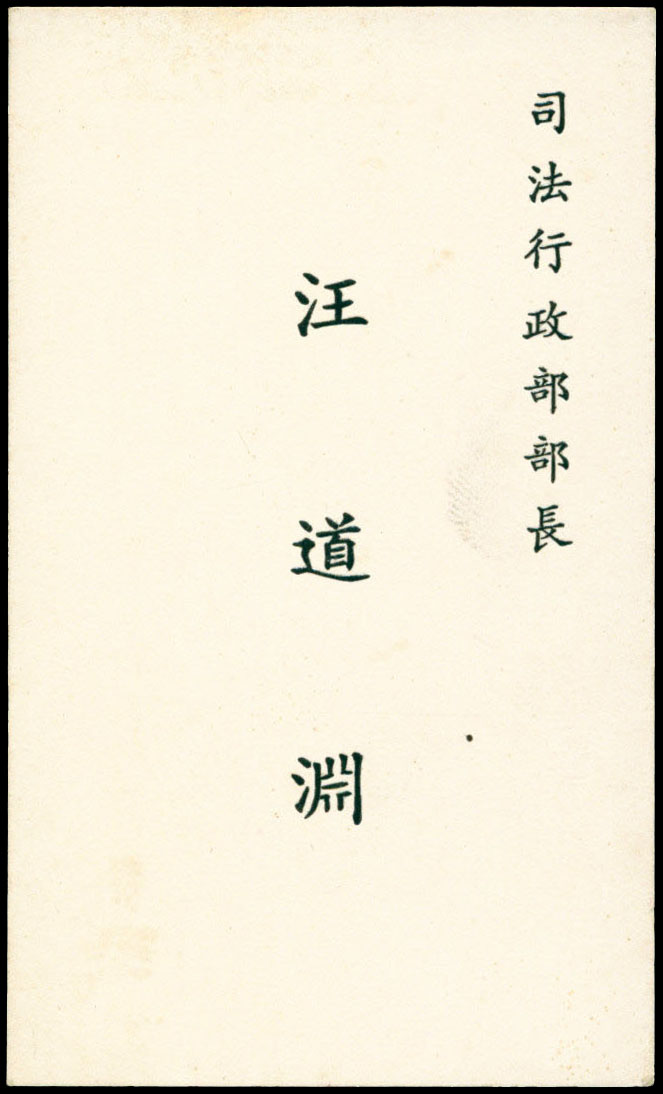 司法行政部部長
汪道淵